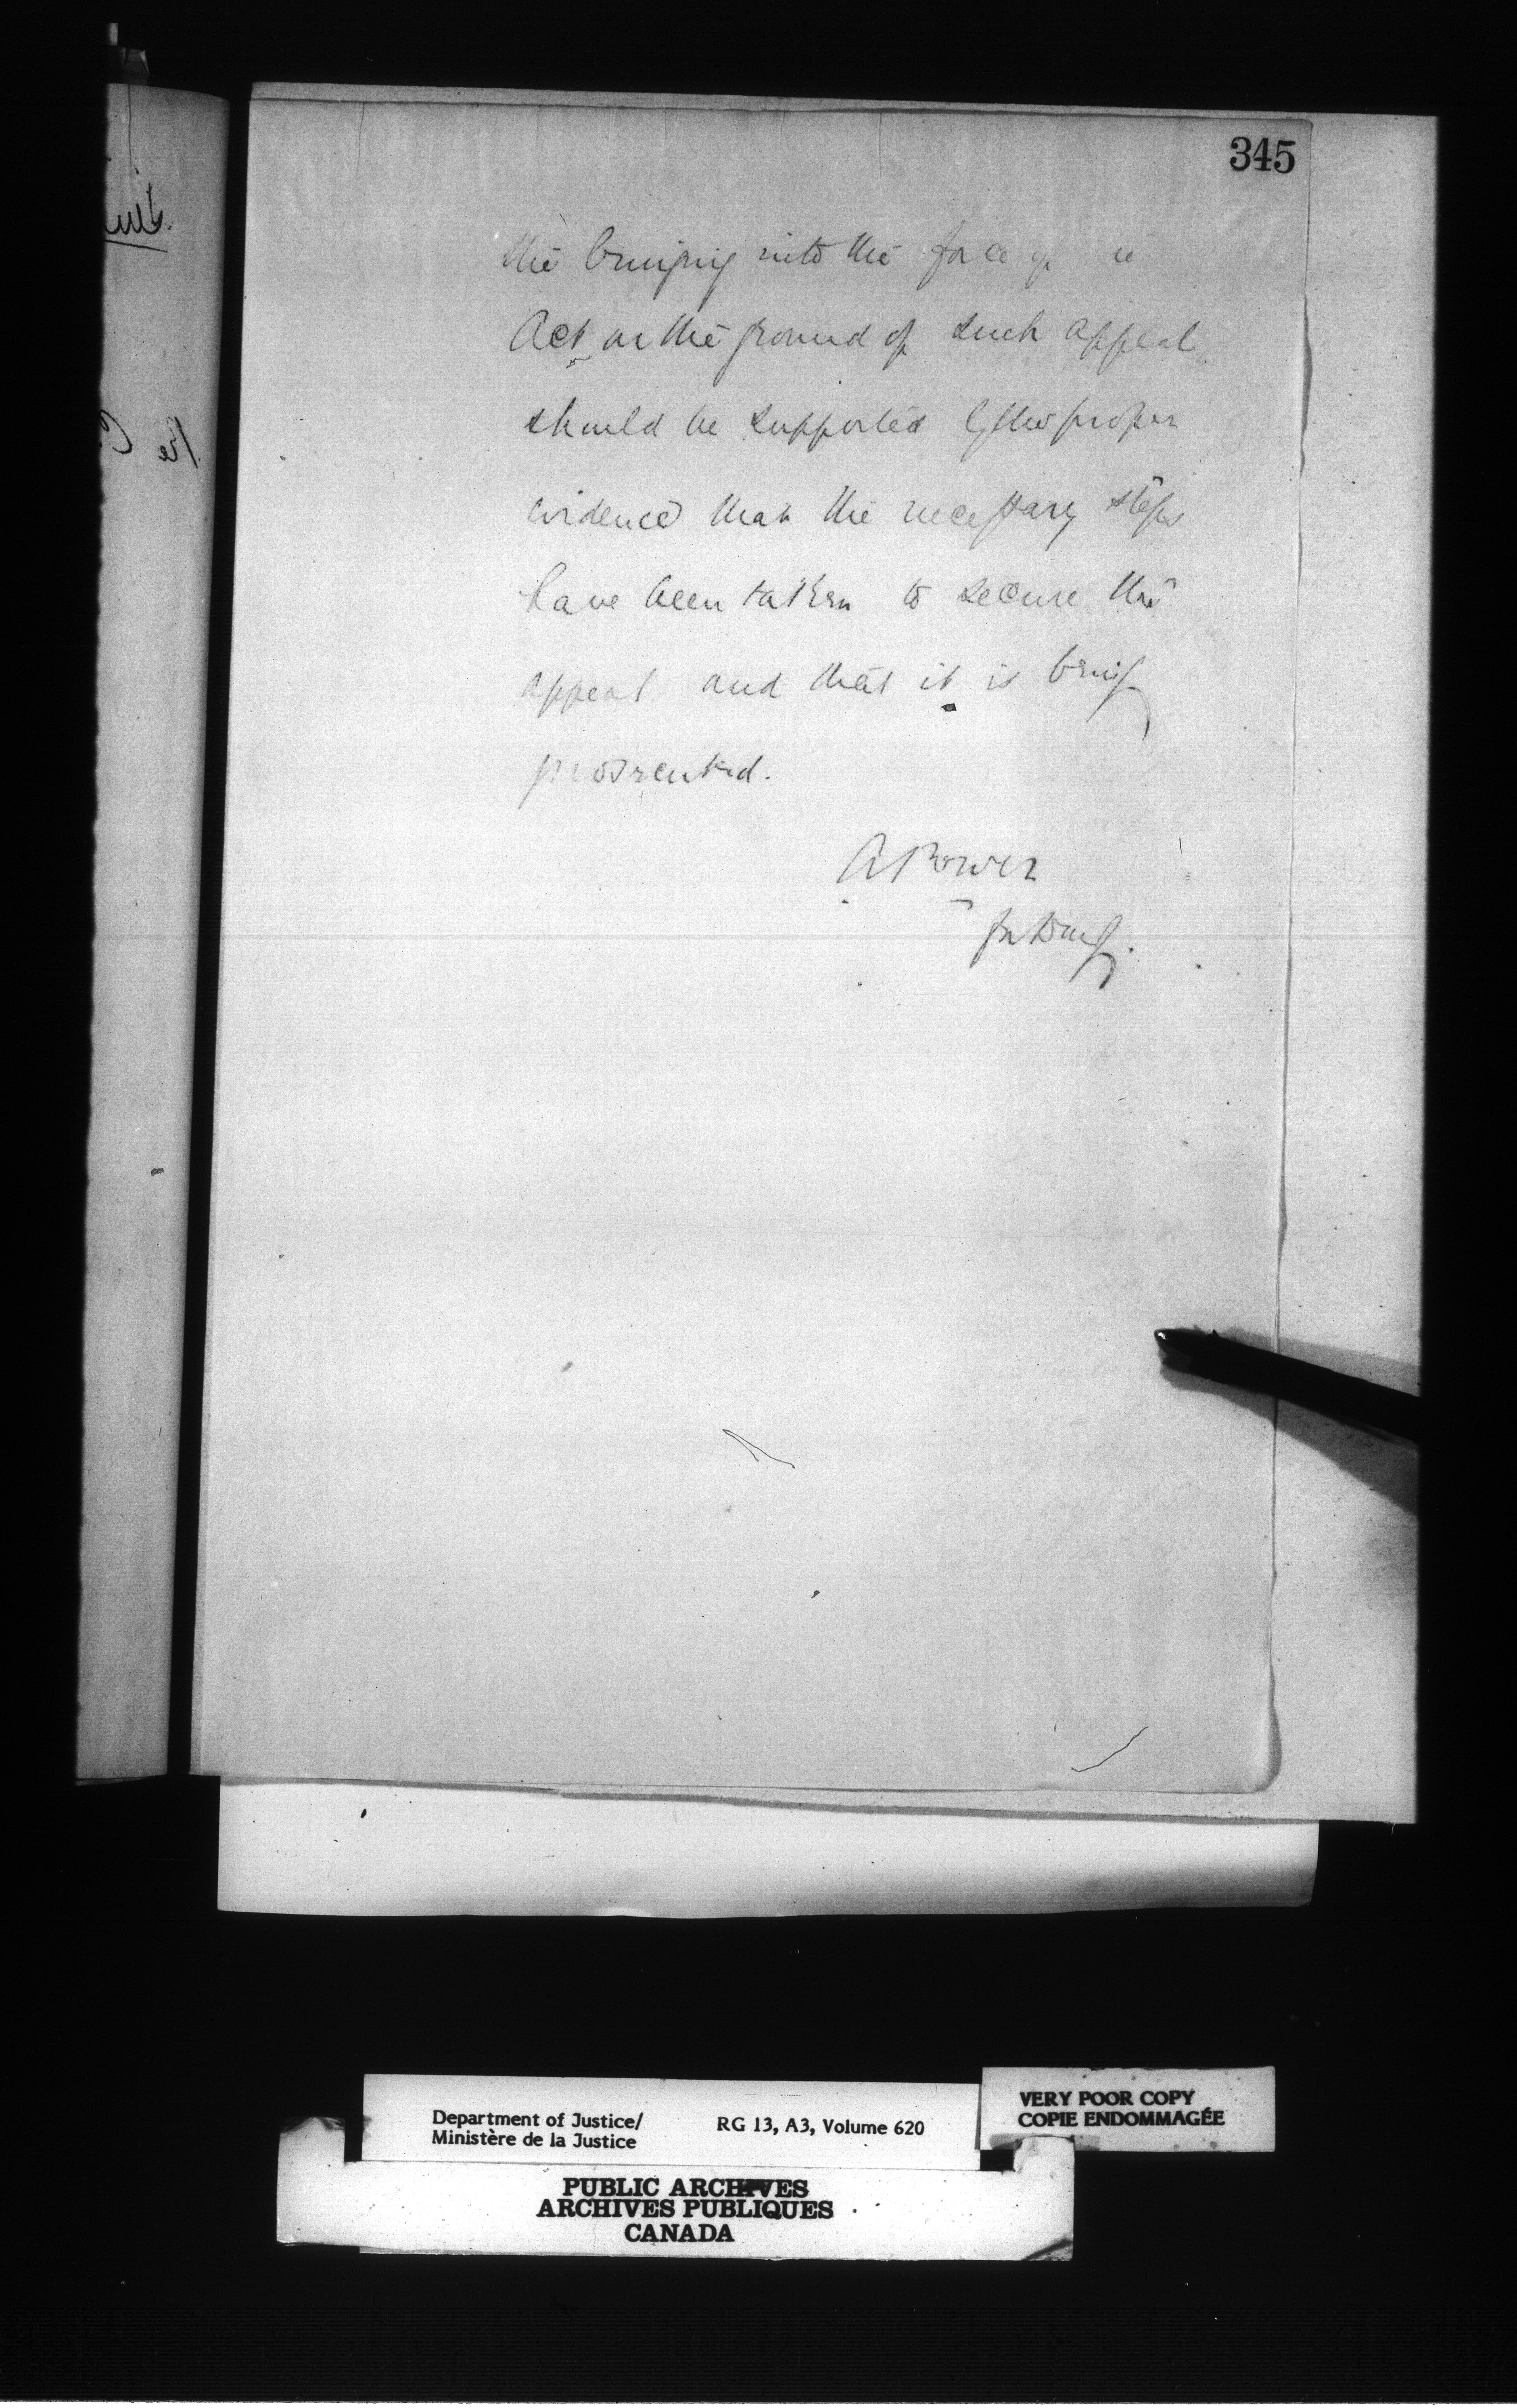 345
the bringing into the force of
Act on the ground of such appeal
should be supported by the proper
evidence that the necessary steps
have been taken to secure the
appeal and that it is being
prosecuted.
A Power
for DMJ.
Department of Justice/
Ministère de la Justice
RG 13, A3, Volume 620
VERY POOR COPY
COPIE ENDOMMAGÉE
PUBLIC ARCHIVES
ARCHIVES PUBLIQUES
CANADA